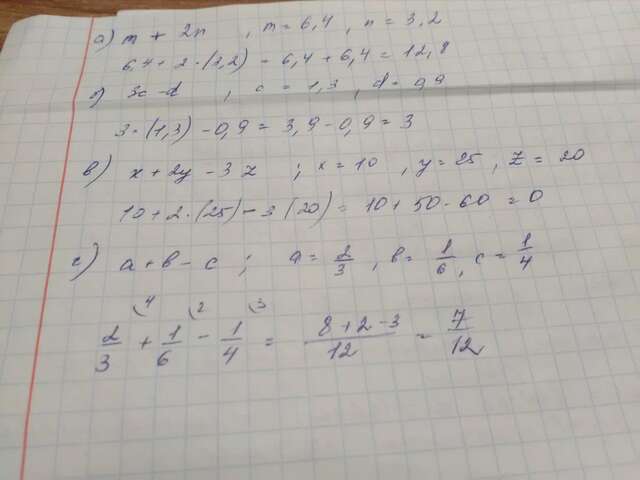 а) m + 2n , m = 6,4 , n = 3,2
6,4 + 2 · (3,2) = 6,4 + 6,4 = 12,8
б) 3c - d , c = 1,3 , d = 0,9
3 · (1,3) - 0,9 = 3,9 - 0,9 = 3
в) x + 2y - 3z ; x = 10 , y = 25 , z = 20
10 + 2 · (25) - 3 (20) = 10 + 50 - 60 = 0
г) a + b - c ; a = 2/3 , b = 1/6 , c = 1/4
2/3 (4 + 1/6 (2 - 1/4 (3 = 8 + 2 - 3/12 = 7/12